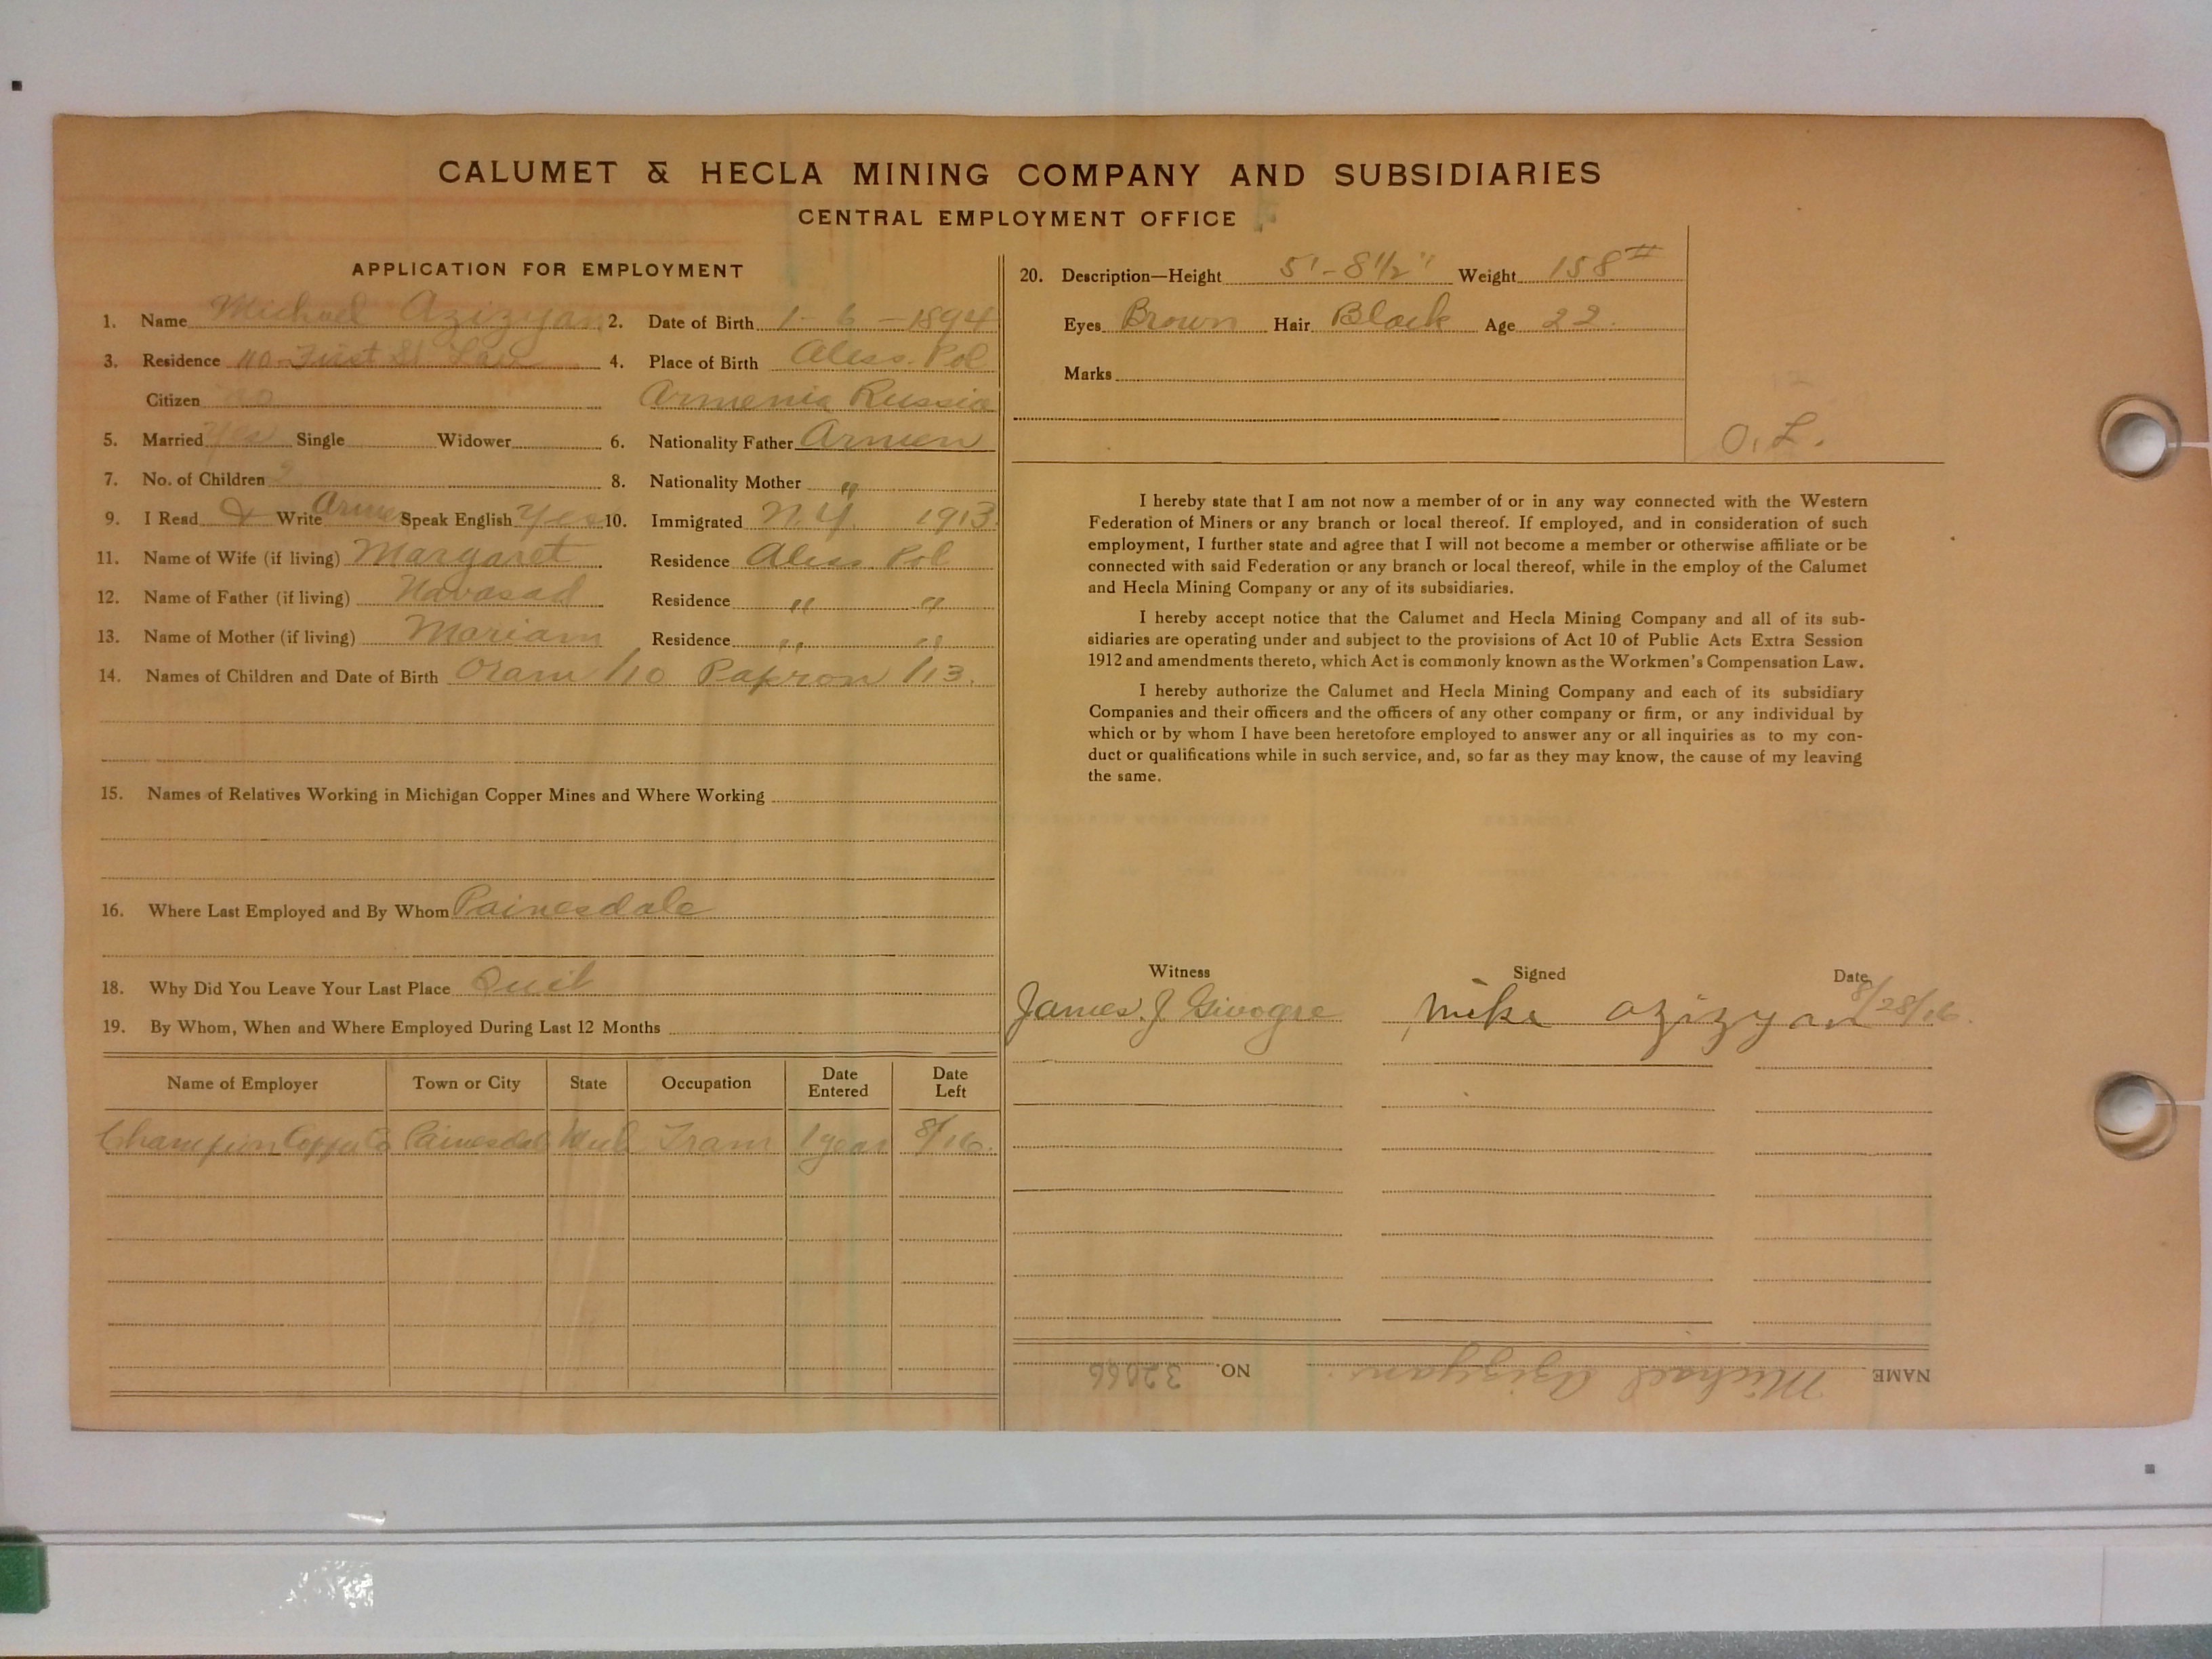 CALUMET & HECLA MINING COMPANY AND SUBSIDIARIES
CENTRAL EMPLOYMENT OFFICE
APPLICATION FOR EMPLOYMENT
1. Name Michael Azizyan 2. Date of Birth 1-6-1894
3. Residence 110 First St. 4. Place of Birth Aless. Pol
Citizen no Armenia Russia
5. Married yes Single Widower 6. Nationality Father Armen
7. No. of Children 2 8. Nationality Mother "
9. I Read & Write Armen Speak English yes 10. Immigrated N.Y. 1913.
11. Name of Wife (if living) Margaret Residence Aless. Pol
12. Name of Father (if living) Navasad Residence " "
13. Name of Mother (if living) Mariam Residence " "
14. Names of Children and Date of Birth Oram /10 Papron /13.
15. Names of Relatives Working in Michigan Copper Mines and Where Working
16. Where Last Employed and By Whom Painesdale
18. Why Did You Leave Your Last Place Quit
19. By Whom, When and Where Employed During Last 12 Months
Name of Employer Town or City State Occupation Date Entered Date Left
Champion Copper Co Painesdale Mich Tram 1 year 8/16.
20. Description—Height 5'-8 1/2" Weight 158#
Eyes Brown Hair Black Age 22.
Marks
O.L.
I hereby state that I am not now a member of or in any way connected with the Western
Federation of Miners or any branch or local thereof. If employed, and in consideration of such
employment, I further state and agree that I will not become a member or otherwise affiliate or be
connected with said Federation or any branch or local thereof, while in the employ of the Calumet
and Hecla Mining Company or any of its subsidiaries.
I hereby accept notice that the Calumet and Hecla Mining Company and all of its sub-
sidiaries are operating under and subject to the provisions of Act 10 of Public Acts Extra Session
1912 and amendments thereto, which Act is commonly known as the Workmen's Compensation Law.
I hereby authorize the Calumet and Hecla Mining Company and each of its subsidiary
Companies and their officers and the officers of any other company or firm, or any individual by
which or by whom I have been heretofore employed to answer any or all inquiries as to my con-
duct or qualifications while in such service, and, so far as they may know, the cause of my leaving
the same.
Witness Signed Date
James. J Givogre mike azizyan 8/28/16.
NAME Michael Azizyan. NO. 32066